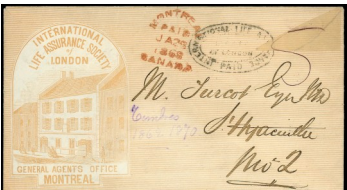 INTERNATIONAL
LIFE ASSURANCE SOCIETY
of
LONDON
GENERAL AGENT'S OFFICE
MONTREAL
MONTREAL
PAID
CANADA
INTERNATIONAL LIFE AS
OF LONDON
PAID
M. Turcot Esqr
St Hyacinthe
No 2